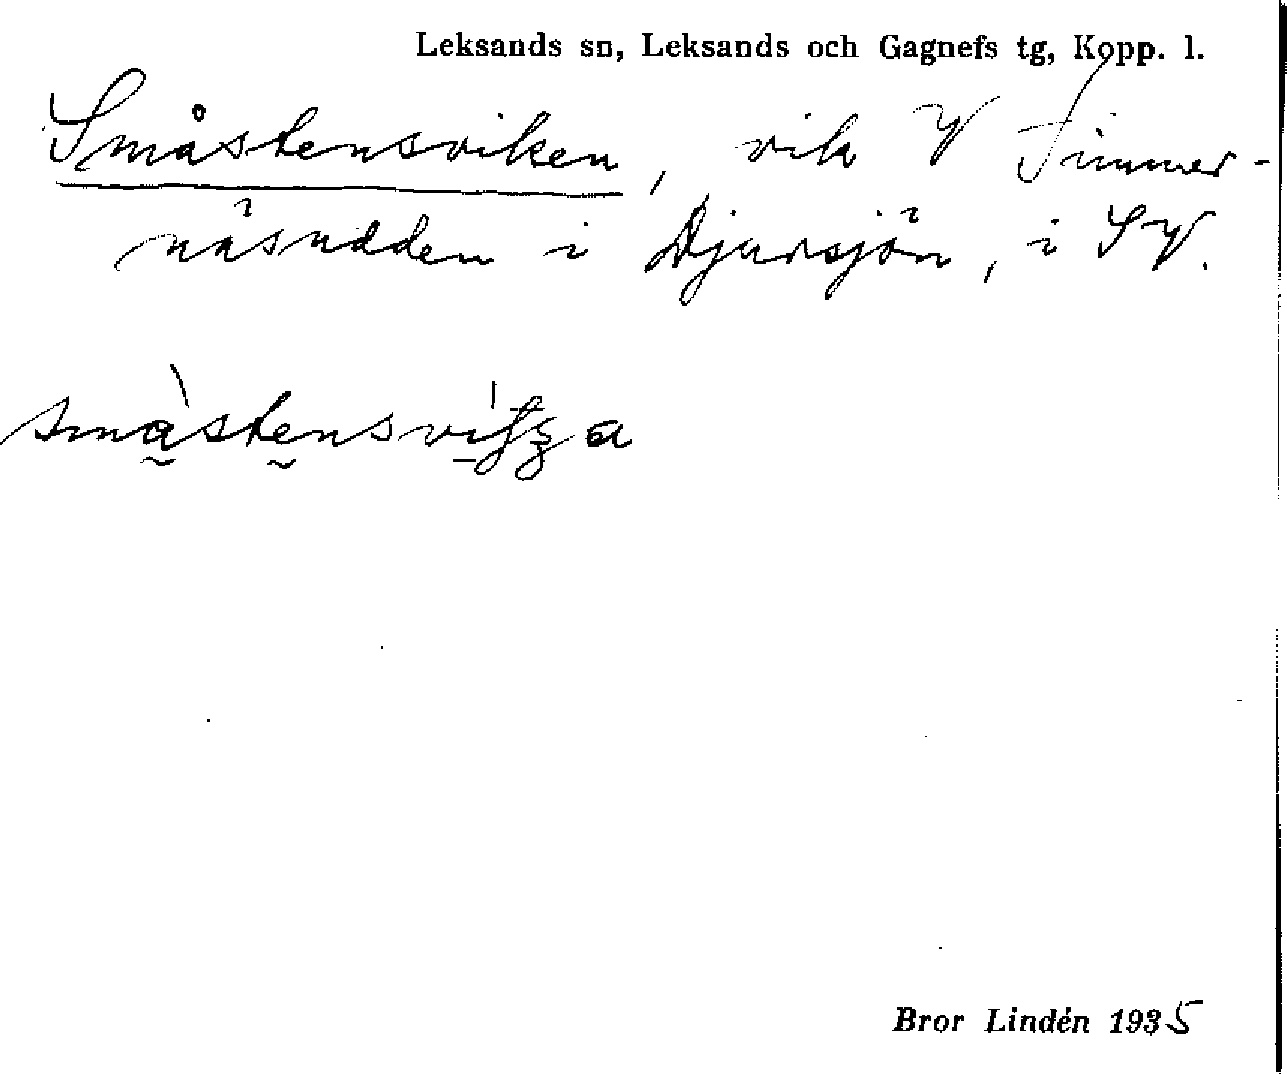 Leksands sn, Leksands och Gagnefs tg, Kopp. l.
Småstensviken, vik V Timmer-
näsudden i Djursjön, i SV.
Bror Lindén 1935